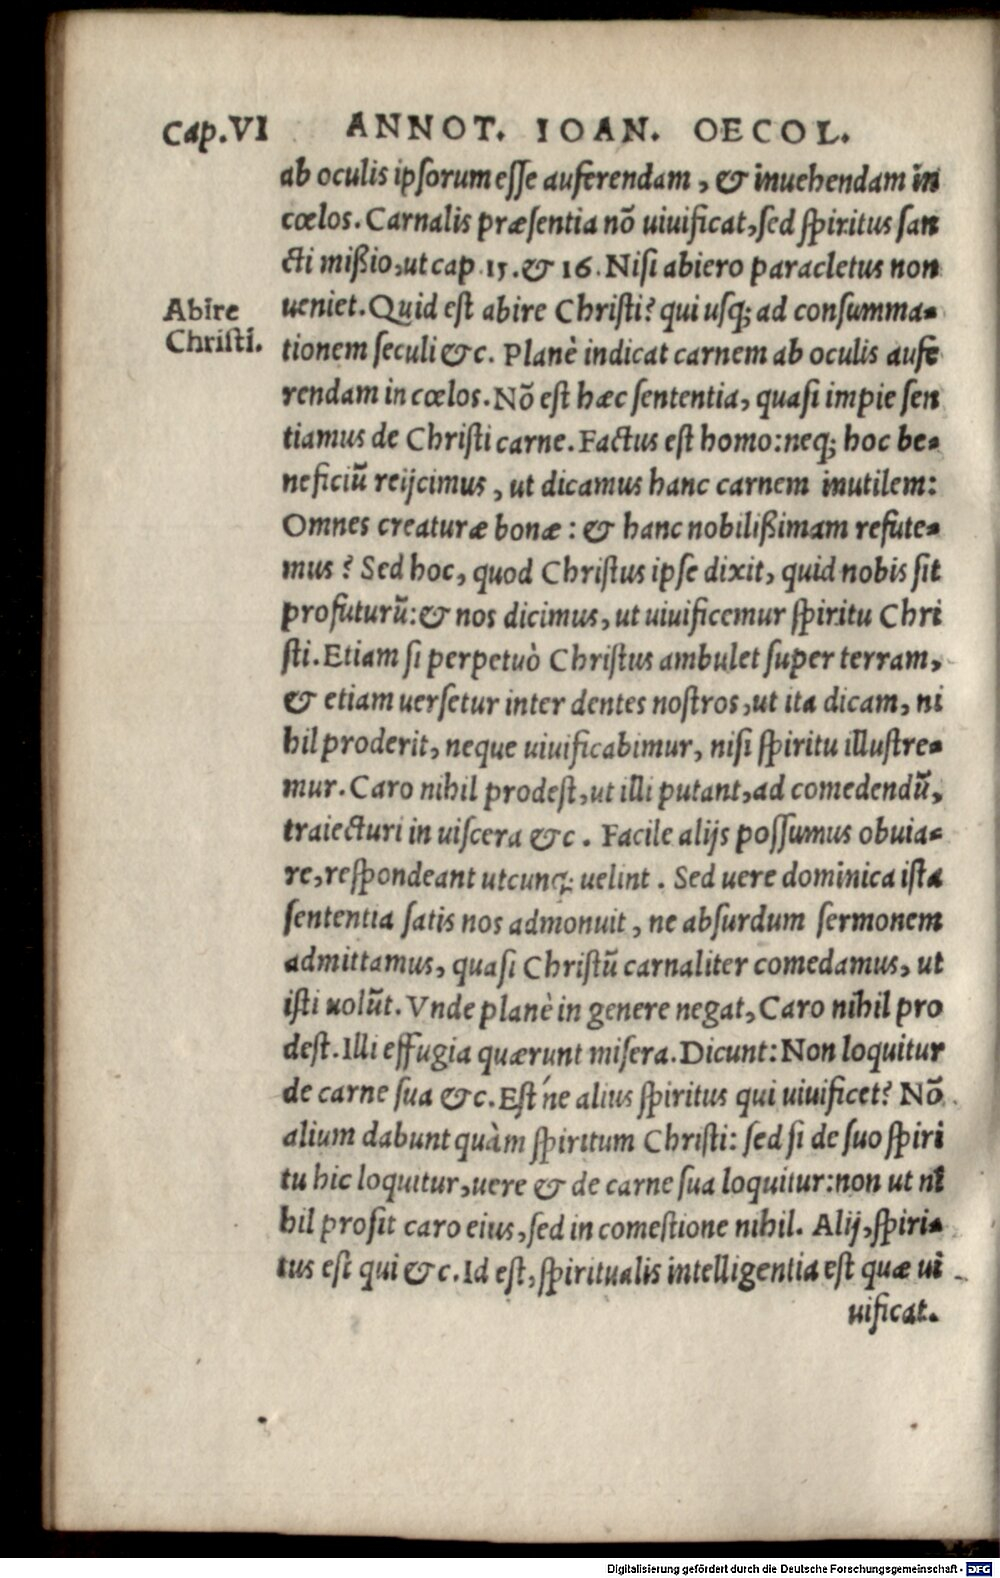 Cap.VI ANNOT. IOAN. OECOL.
ab oculis ipsorum esse auferendam, & inuehendam in
cœlos. Carnalis præsentia nō uiuificat, sed spiritus san
cti mißio, ut cap. 15. & 16. Nisi abiero paracletus non
Abire
Christi.
ueniet. Quid est abire Christi? qui usq; ad consumma-
tionem seculi &c. Planè indicat carnem ab oculis aufe
rendam in cœlos. Nō est hæc sententia, quasi impie sen
tiamus de Christi carne. Factus est homo: neq; hoc be-
neficiū reijcimus, ut dicamus hanc carnem inutilem:
Omnes creaturæ bonæ: & hanc nobilißimam refute-
mus? Sed hoc, quod Christus ipse dixit, quid nobis sit
profuturū: & nos dicimus, ut uiuificemur spiritu Chri
sti. Etiam si perpetuò Christus ambulet super terram,
& etiam uersetur inter dentes nostros, ut ita dicam, ni
hil proderit, neque uiuificabimur, nisi spiritu illustre-
mur. Caro nihil prodest, ut illi putant, ad comedendū,
traiecturi in uiscera &c. Facile alijs possumus obuia-
re, respondeant utcunq; uelint. Sed uere dominica ista
sententia satis nos admonuit, ne absurdum sermonem
admittamus, quasi Christū carnaliter comedamus, ut
isti uolūt. Vnde planè in genere negat, Caro nihil pro
dest. Illi effugia quærunt misera. Dicunt: Non loquitur
de carne sua &c. Est´ne alius spiritus qui uiuificet? Nō
alium dabunt quàm spiritum Christi: sed si de suo spiri
tu hic loquitur, uere & de carne sua loquitur: non ut ni
hil prosit caro eius, sed in comestione nihil. Alij, spiri-
tus est qui &c. Id est, spiritualis intelligentia est quæ ui
uificat.
Digitalisierung gefördert durch die Deutsche Forschungsgemeinschaft - DFG